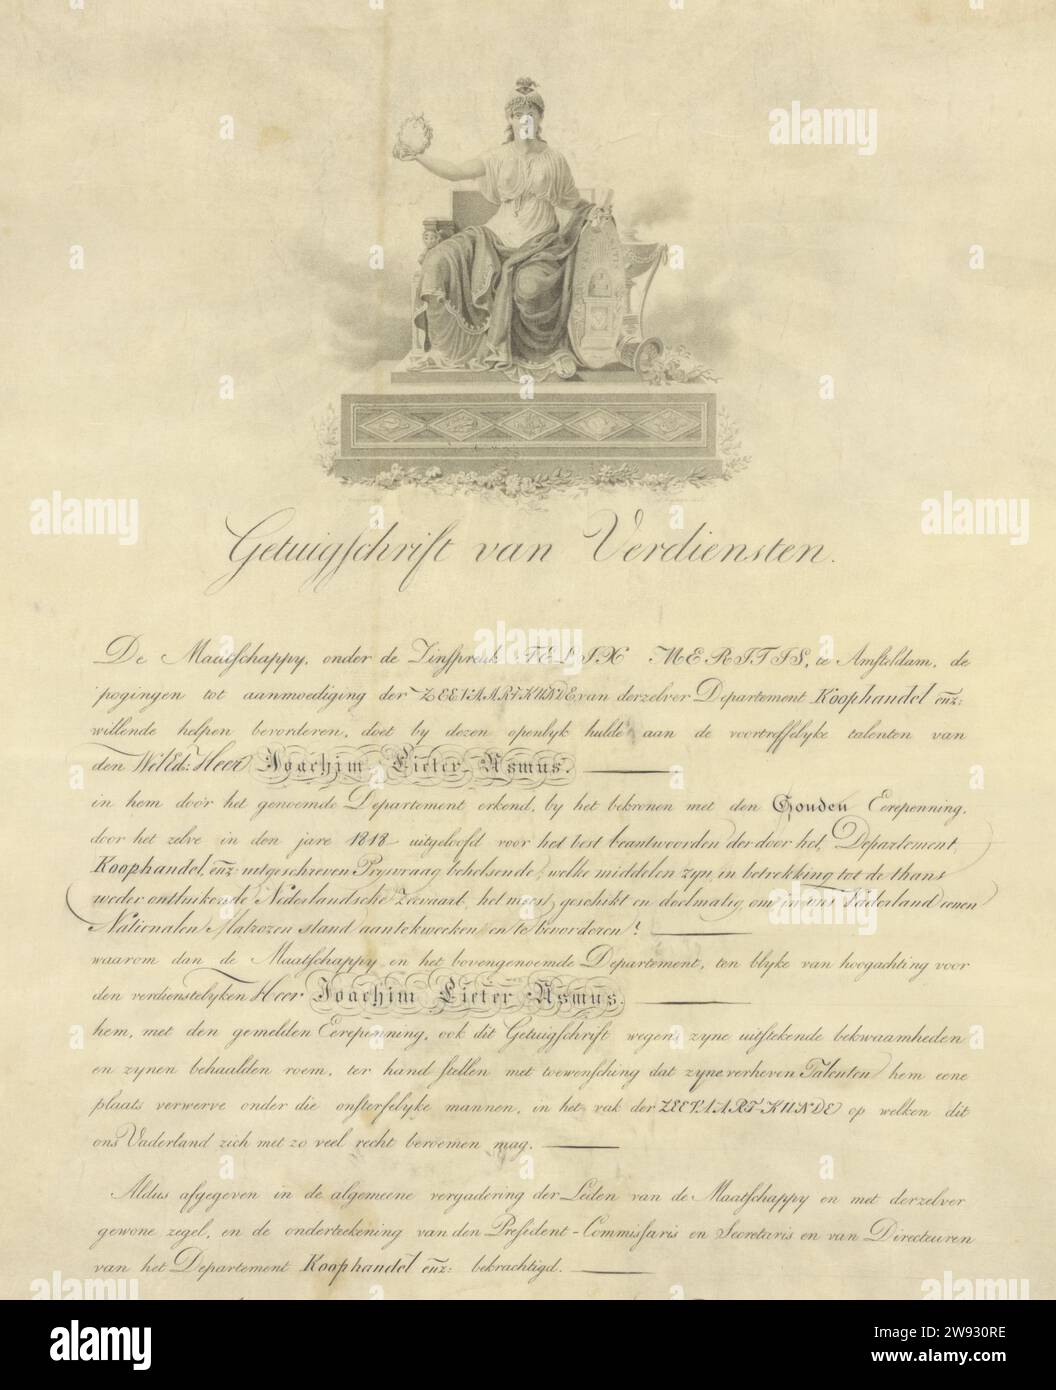 Getuigschrift van Verdiensten.
De Maatschappy, onder de Zinspreuk FELIX MERITIS, te Amsteldam, de
pogingen tot aanmoediging der ZEEVAARTKUNDE, van derzelver Departement Koophandel enz:
willende helpen bevorderen, doet by dezen openlyk hulde aan de voortreffelyke talenten van
den WelEd: Heer Joachim Pieter Asmus.
in hem door het genoemde Departement erkend, by het bekronen met den Gouden Eerepenning,
door het zelve in den jare 1818 uitgeloofd voor het best beantwoorden der door het Departement
Koophandel, enz: uitgeschreven Prysvraag behelsende, welke middelen zyn, in betrekking tot de thans
weder ontluikende Nederlandsche Zeevaart, het meest geschikt en doelmatig om in ons Vaderland eenen
Nationalen Matrozen stand aantekweeken en te bevorderen?
waarom dan de Maatschappy en het bovengenoemde Departement, ten blyke van hoogachting voor
den verdienstelyken Heer Joachim Pieter Asmus,
hem, met den gemelden Eerepenning, ook dit Getuigschrift wegens zyne uitstekende bekwaamheden
en zynen behaalden roem, ter hand stellen met toewensching dat zyne verheven Talenten hem eene
plaats verwerve onder die onsterfelyke mannen, in het vak der ZEEVAART-KUNDE op welken dit
ons Vaderland zich met zo veel recht beroemen mag.
Aldus afgegeven in de algemeene vergadering der Leden van de Maatschappy en met derzelver
gewone zegel, en de onderteekening van den President-Commissaris en Secretaris en van Directeuren
van het Departement Koophandel enz: bekrachtigd.
alamy
alamy
alamy
alamy
alamy
alamy
alamy
alamy
Image ID: 2W930RE
www.alamy.com